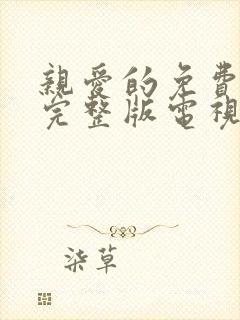 親愛的免費
完整版電視
柒草